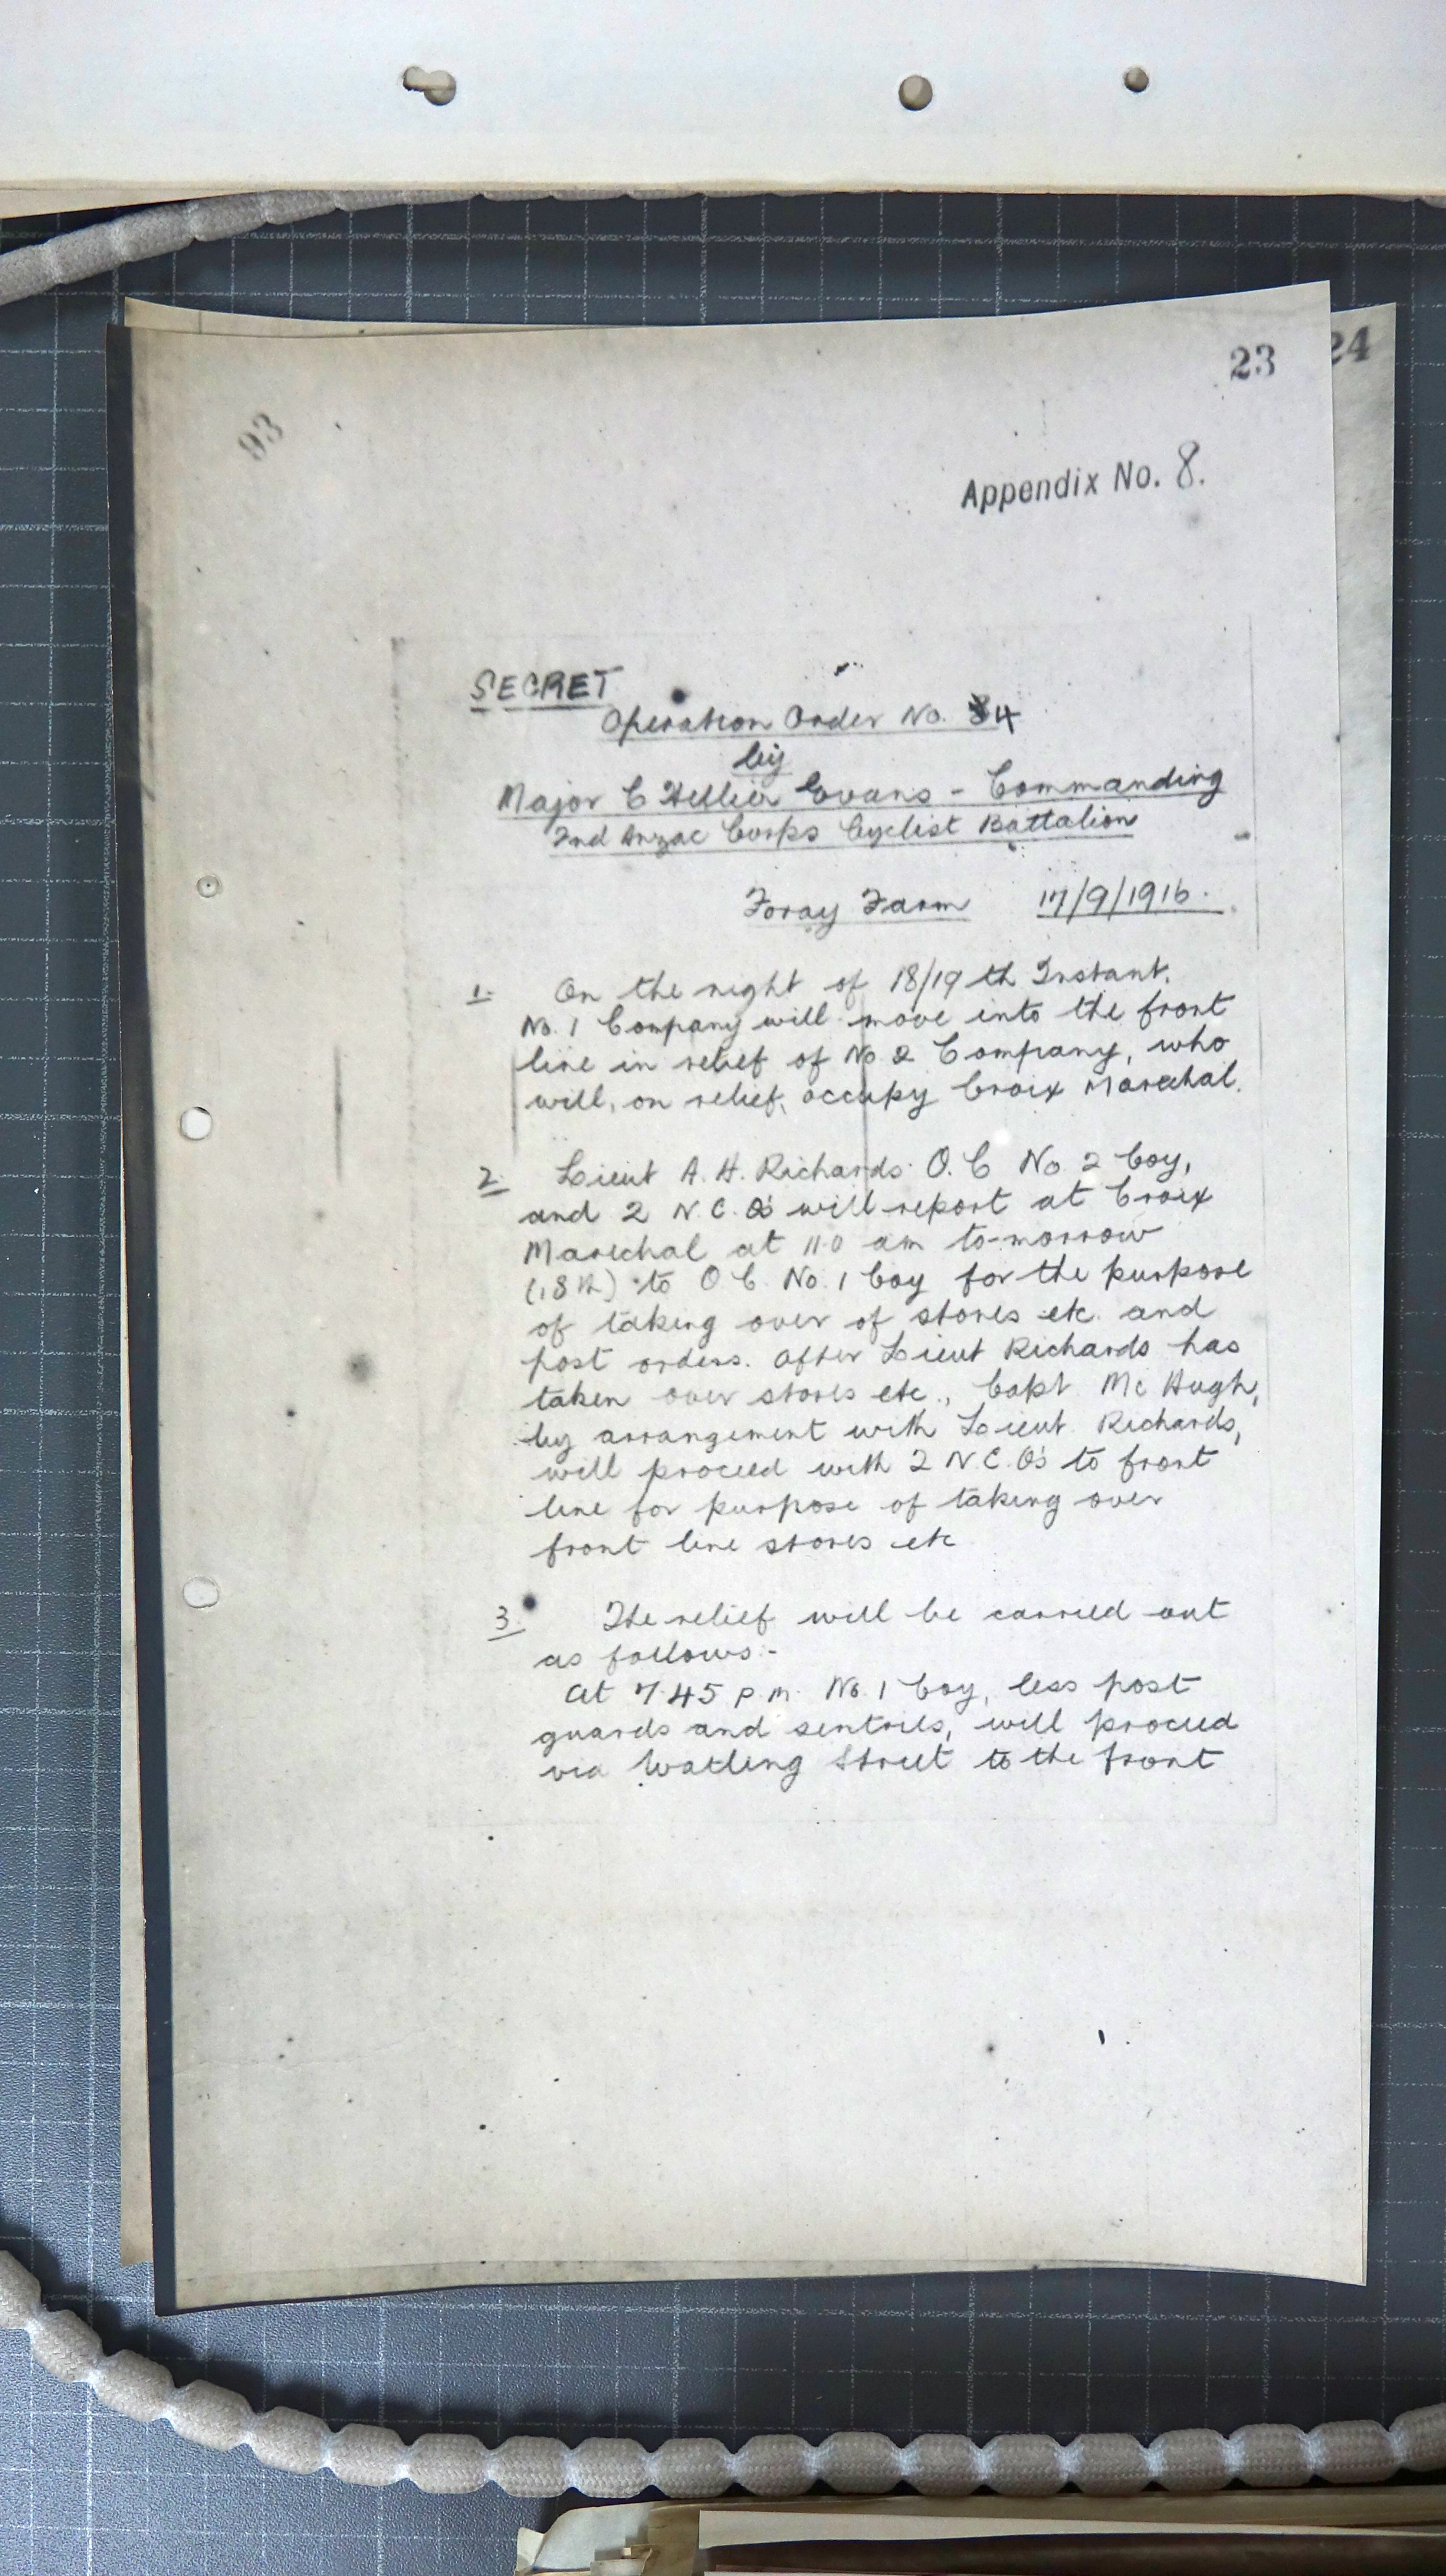 23
24
93
Appendix No. 8.
SECRET
Operation Order No. 4
by
Major C Hellier Evans - Commanding
2nd Anzac Corps Cyclist Battalion
Foray Farm 17/9/1916.
1. On the night of 18/19th Instant.
No. 1 Company will move into the front
line in relief of No 2 Company, who
will, on relief, occupy Croix Marechal.
2. Lieut A. H. Richards O.C No 2 Coy,
and 2 N.C.O's will report at Croix
Marechal at 11.0 am to-morrow
(18th) to O C. No. 1 Coy for the purpose
of taking over of stores etc. and
post orders. After Lieut Richards has
taken over stores etc., Capt Mc Hugh,
by arrangement with Lieut Richards,
will proceed with 2 N.C.O's to front
line for purpose of taking over
front line stores etc
3. The relief will be carried out
as follows:-
At 7.45 p.m. No. 1 Coy, less post
guards and sentries, will proceed
via Watling Street to the front